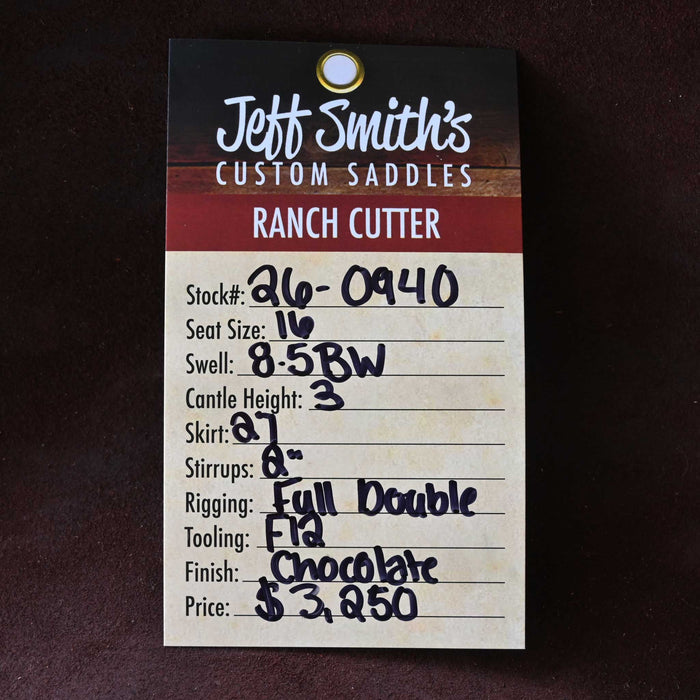 Jeff Smith's
CUSTOM SADDLES
RANCH CUTTER
Stock#: 26-0940
Seat Size: 16
Swell: 8.5BW
Cantle Height: 3
Skirt: 27
Stirrups: 2"
Rigging: Full Double
Tooling: F12
Finish: Chocolate
Price: $3,250